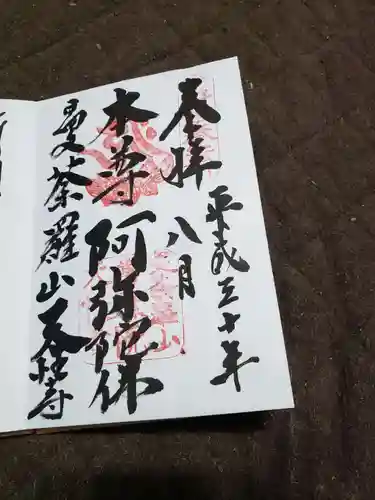 奉拝
平成三十年
八月
本尊 阿弥陀佛
曼荼羅山 天性寺